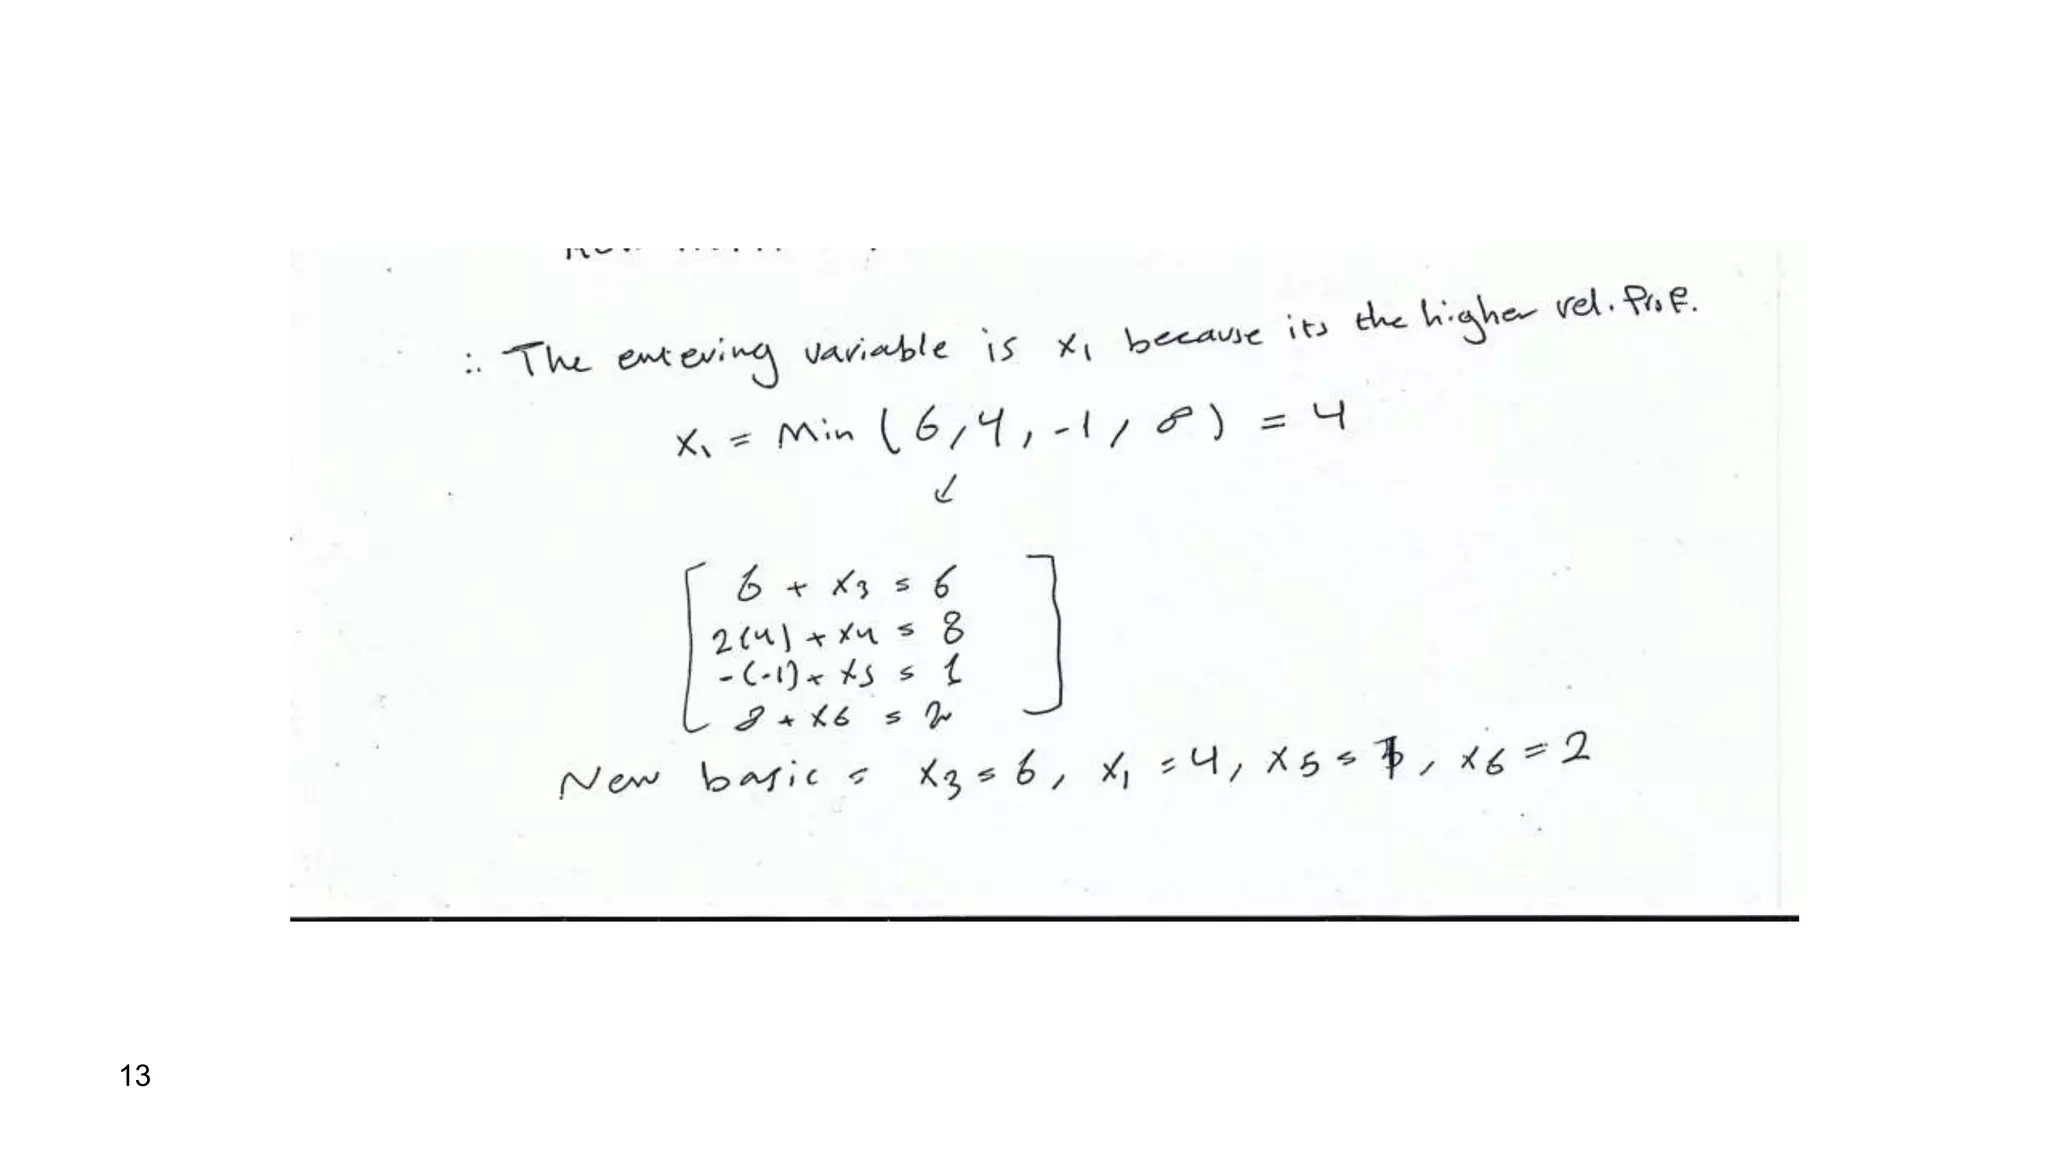 ∴ The entering variable is x₁ because its the higher rel. Prof.
x₁ = Min ( 6, 4, -1, ∞ ) = 4
↙
6 + x₃ = 6
2(4) + x4 = 8
-(-1) + x5 = 1
+ x6 = 2
New basic = x₃ = 6, x₁ = 4, x5 = , x6 = 2
13